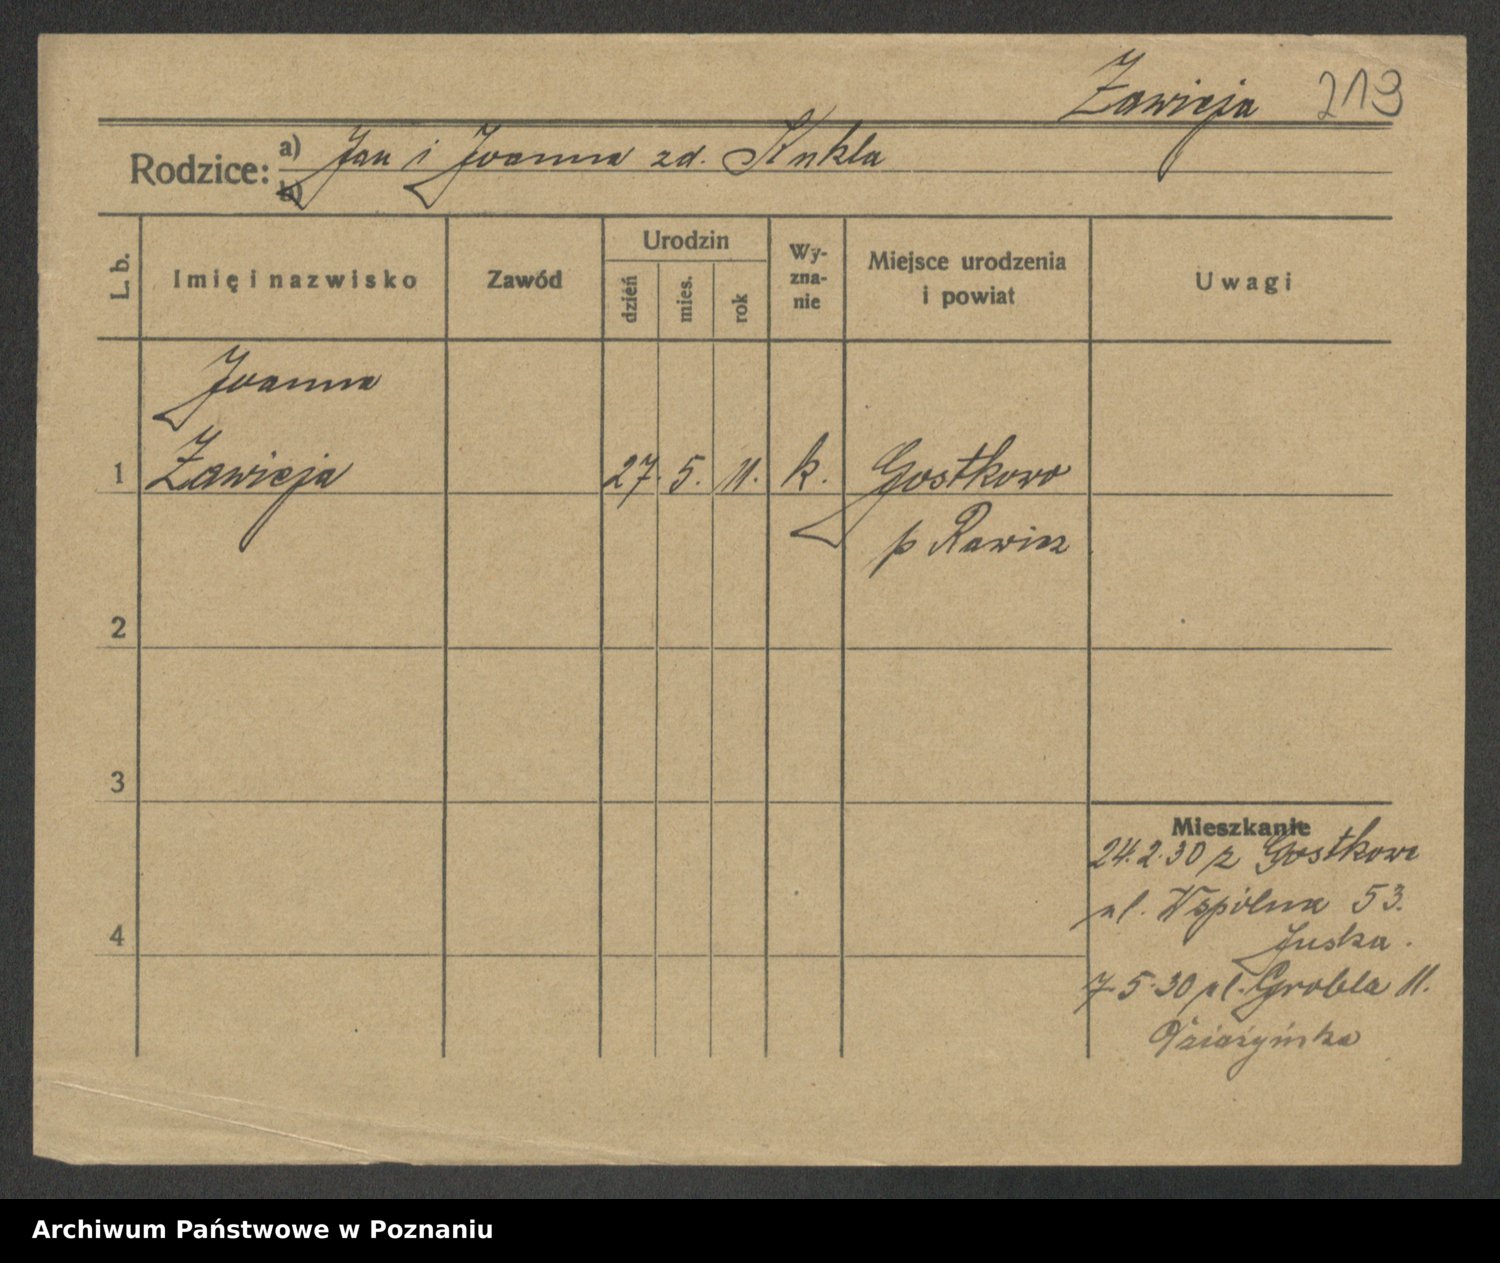 Zawieja 213
Rodzice: a) Jan i Joanna zd. Kukla
b)
L. b.
Imię i nazwisko
Zawód
Urodzin
dzień
mies.
rok
Wy-
zna-
nie
Miejsce urodzenia
i powiat
Uwagi
Joanna
1 Zawieja 27. 5. 11. k. Gostkowo
p Rawicz
2
3
4
Mieszkanie
24.2.30 z Gostkowo
ul. Wspólna 53.
Juska.
7.5.30 ul. Grobla 11.
Archiwum Państwowe w Poznaniu